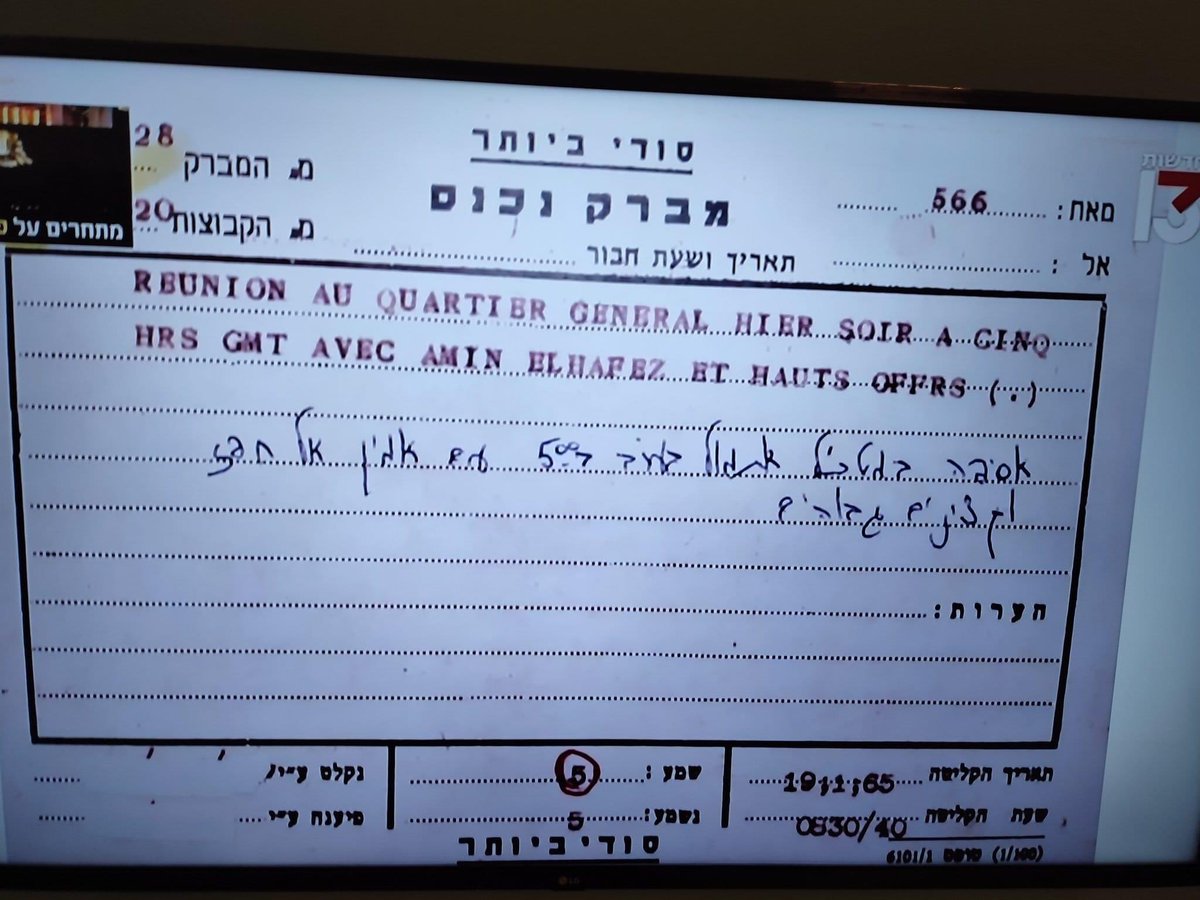 סודי ביותר
מברק נכנס
28
מ. המברק ....
20
מ. הקבוצות
מאת: 566
אל :
תאריך ושעת חבור
חדשות
13
מתחרים על
REUNION AU QUARTIER GENERAL HIER SOIR A CINQ
HRS GMT AVEC AMIN ELHAFEZ ET HAUTS OFFRS (.)
אסיפה במטכ"ל אתמול בערב ב-5⁰⁰ עם אמין אל חפז
וקצינים גבוהים
הערות:
תאריך הקליטה 19;1;65
שעת הקליטה 0830/40
שמע : 5
נשמע: 5
נקלט ע"י
פיענח ע"י
סודי ביותר
6101/1 טופס (1/100)
LG